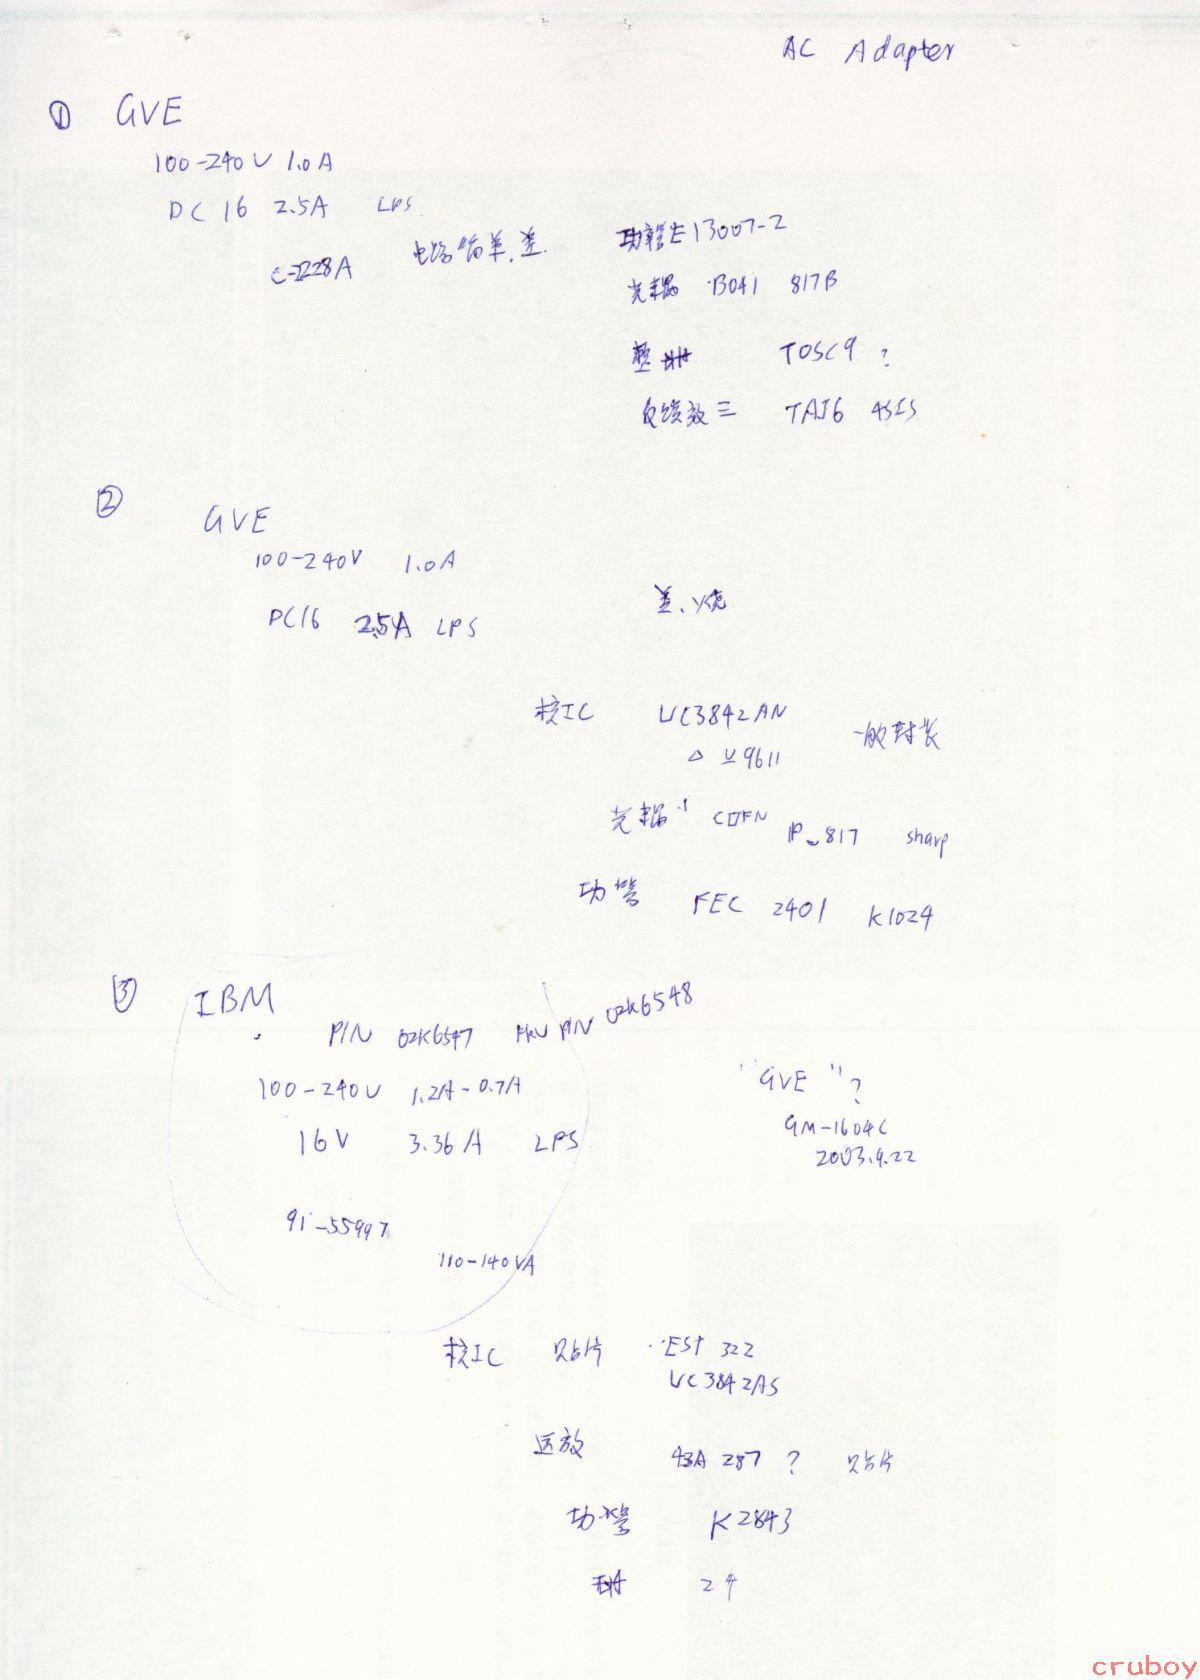 AC Adapter
① GVE
100-240V 1.0A
DC 16 2.5A LPS
C-2228A 电路简单.差. 功管E13007-2
光耦 B041 817B
整 TOSC9 ?
反馈放三 TAJ6 4SIS
② GVE
100-240V 1.0A
DC16 2.5A LPS
差.烧
核IC UC3842AN 一般封装
9611
光耦 COFN
P 817 sharp
功管 FEC 2401 K1024
③ IBM
P/N 02K6547 FRU P/N 02K6548
100-240V 1.2A-0.7A
"GVE"?
16V 3.36A LPS
GM-1604C
2003.9.22
91-55997
110-140VA
核IC 贴片 EST 322
UC3842AS
运放 43A 287 ? 贴片
功管 K2843
2个
cruboy